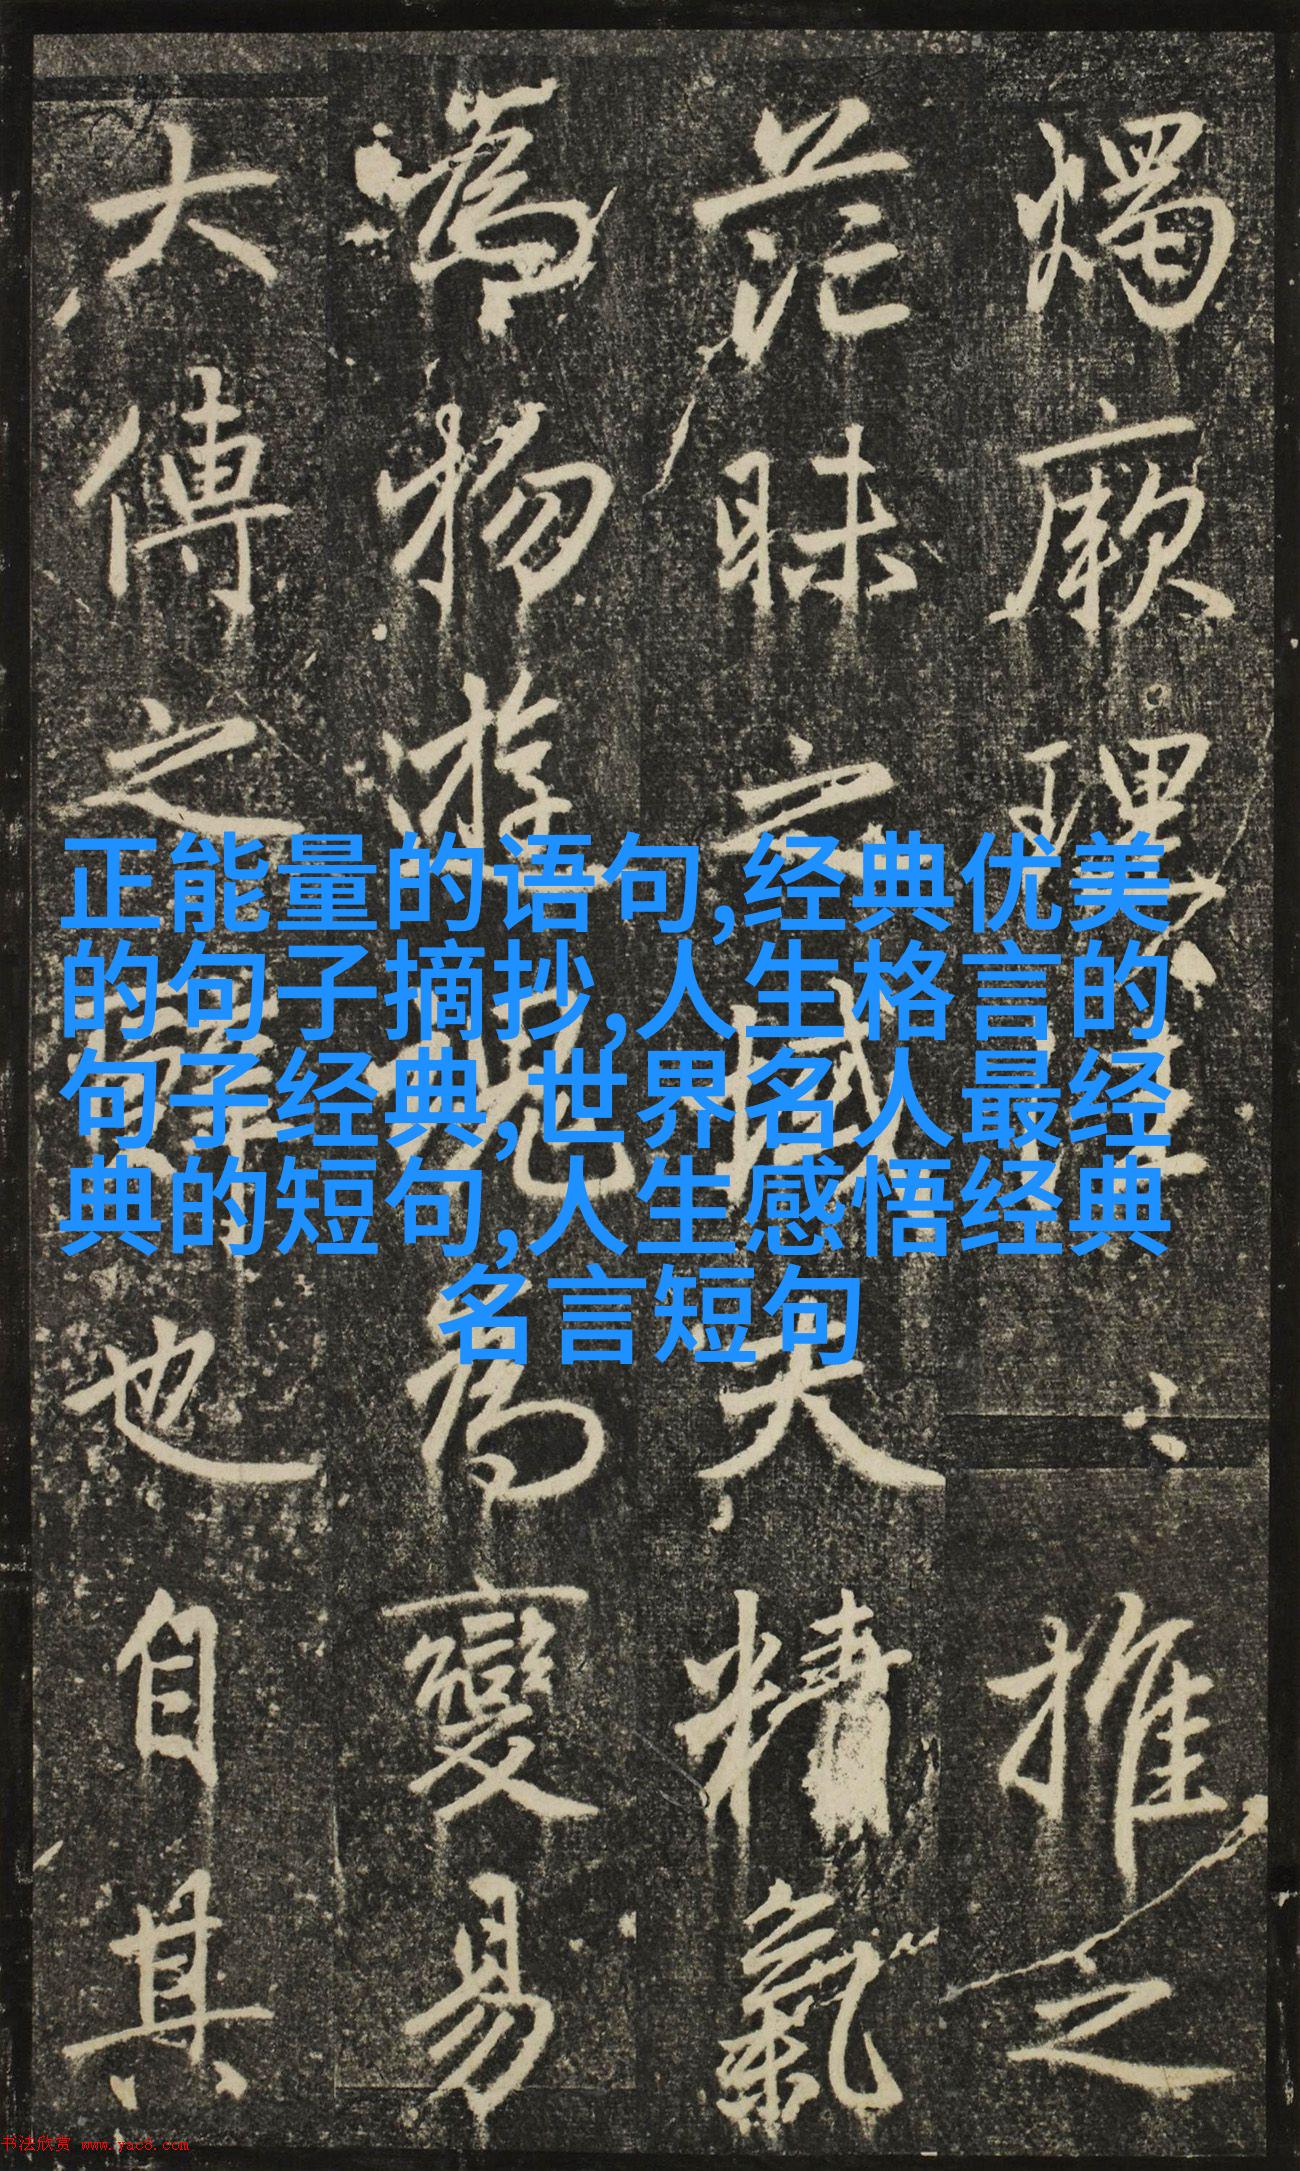 燭厥理推之
茫昧之域夫精氣
為物游魂為變易
大傳之辭也自其
正能量的语句,经典优美
的句子摘抄,人生格言的
句子经典,世界名人最经
典的短句,人生感悟经典
名言短句
书法欣赏 www.yac8.com